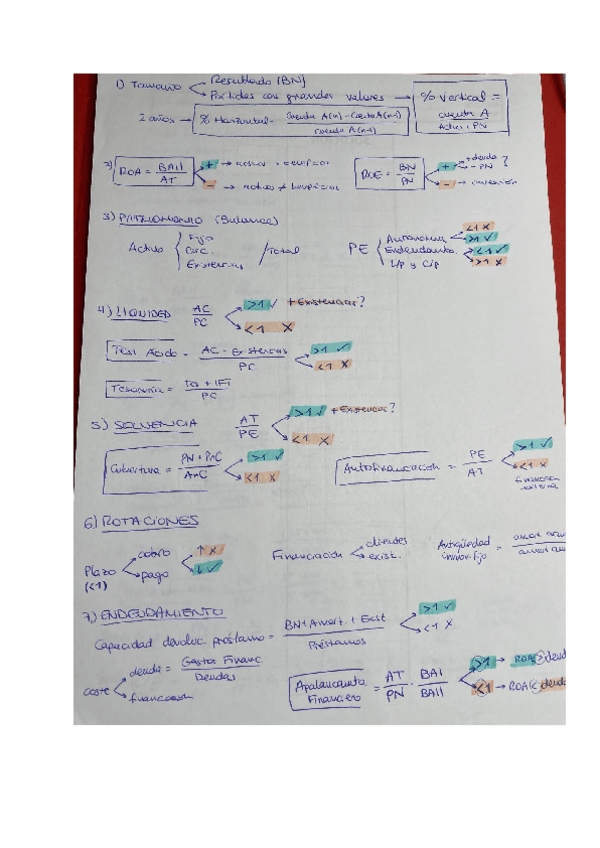 1) Tamaño Resultado (BN)
Partidas con grandes valores → % Vertical = cuenta A / Activo o PN
2 años → % Horizontal = Cuenta A(n) - Cuenta A(n-1) / Cuenta A(n-1)
2) ROA = BAII / AT + → activos
- → activos ≠ ROE = BN / PN + +deuda - PN ?
- →
3) PATRIMONIO (Balance)
Activo Fijo Existencias /Total PE Autonomía <1 X >1 ✓
Endeudamto. <1 ✓ >1 X
L/p y C/p
4) LIQUIDEZ AC / PC >1 ✓ + Existencias?
<1 X
Test Ácido = AC - Existencias / PC >1 ✓
<1 X
Tesorería = / PC
5) SOLVENCIA AT / PE >1 ✓ + Existencias?
<1 X
Cobertura = PN + PNC / ANC >1 ✓ <1 X
Autofinanciación = PE / AT >1 ✓ <1 X
financiación externa
6) ROTACIONES
Plazo (<1) cobro ↑ X
pago ↓ ✓
Financiación clientes
exist.
Antigüedad inmov. fijo =
7) ENDEUDAMIENTO
Capacidad devoluc. préstamo = BN + Amort. + Exist / Préstamos >1 ✓
<1 X
coste deuda = Gastos Financ. / Deudas
financiación
Apalancamiento Financiero = AT / PN · BAI / BAII >1 → ROA > deud
<1 → ROA < deuda